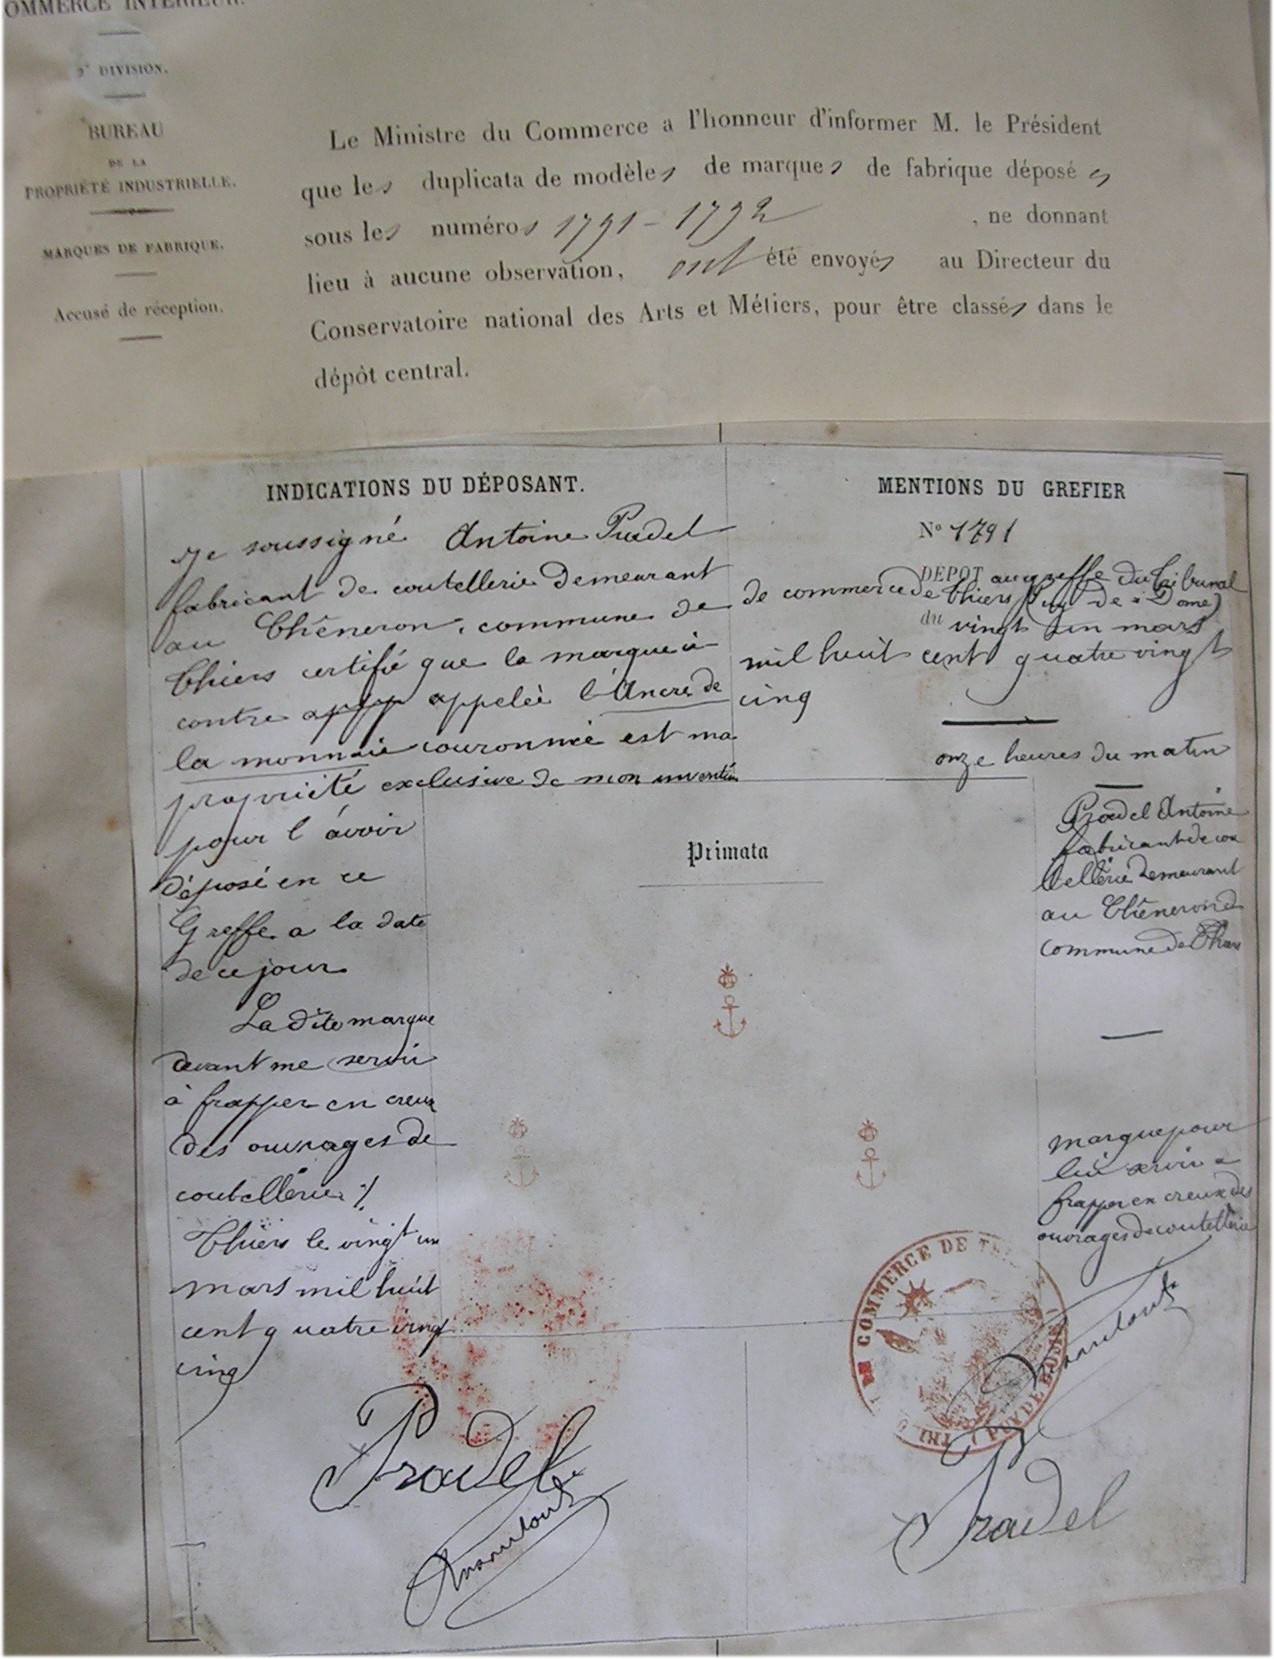 COMMERCE INTÉRIEUR.
2e DIVISION.
BUREAU
DE LA
PROPRIÉTÉ INDUSTRIELLE.
MARQUES DE FABRIQUE.
Accusé de réception.
Le Ministre du Commerce a l'honneur d'informer M. le Président
que les duplicata de modèles de marques de fabrique déposés
sous les numéros 1791 - 1792 , ne donnant
lieu à aucune observation, ont été envoyés au Directeur du
Conservatoire national des Arts et Métiers, pour être classés dans le
dépôt central.
INDICATIONS DU DÉPOSANT.
Je soussigné Antoine Pradel
fabricant de coutellerie demeurant
au Chêneron, commune de
Thiers certifié que la marque ci
contre appelée l'Ancre de
la monnaie couronnée est ma
propriété exclusive de mon invention
pour l'avoir
déposé en ce
Greffe a la date
de ce jour
La dite marque
devant me servir
à frapper en creux
des ouvrages de
coutellerie ./.
Thiers le vingt un
mars mil huit
cent quatre vingt
cinq
Pradel
MENTIONS DU GREFIER
No 1791
DEPOT au greffe du Tribunal
de commerce de Thiers (Puy-de-Dome)
du vingt un mars
mil huit cent quatre vingt
cinq
onze heures du matin
Primata
Pradel Antoine
fabricant de cou
tellerie demeurant
au Chêneron
commune de Thiers
marque pour
lui servir a
frapper en creux des
ouvrages de coutellerie
COMMERCE DE
PUY DE DOME
TRI
Pradel